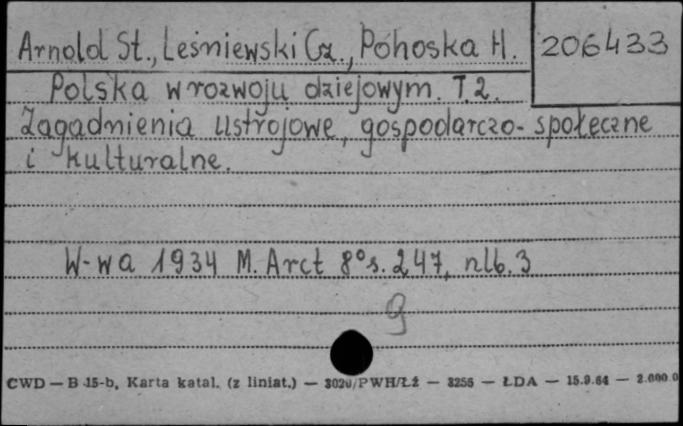 Arnold St., Leśniewski Cz., Pohoska H. 206433
Polska w rozwoju dziejowym. T.2.
Zagadnienia ustrojowe, gospodarczo-społeczne
i kulturalne.
W-wa 1934 M. Arct 8° s. 247, nlb. 3
g
CWD — B 15-b, Karta katal. (z liniat.) — 3020/PWH/Łż — 3256 — ŁDA — 15.9.64 — 2.000.0